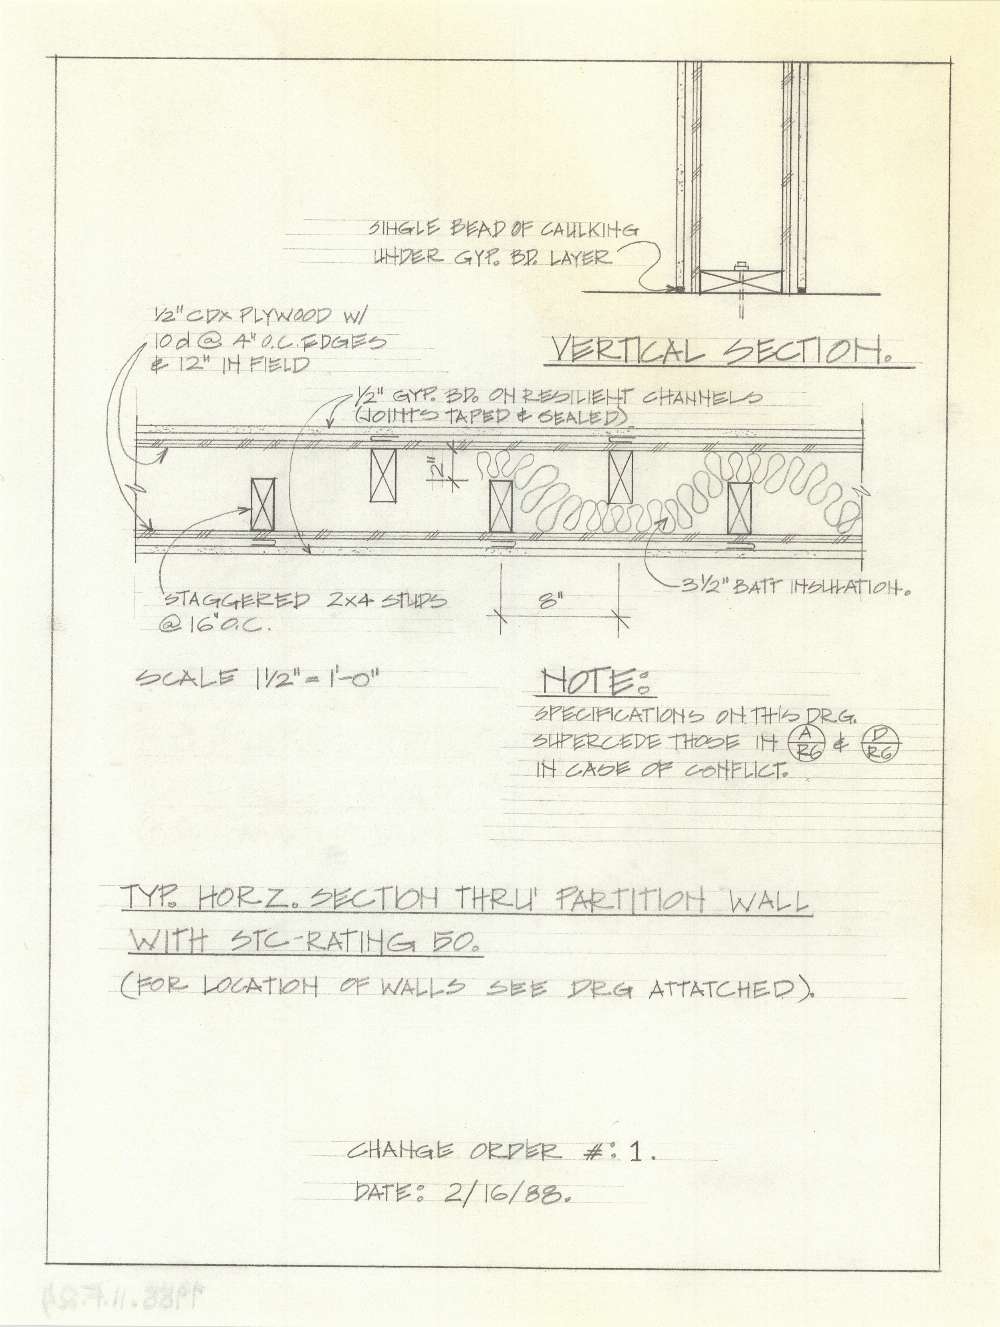 SINGLE BEAD OF CAULKING
UNDER GYP. BD. LAYER
VERTICAL SECTION.
1/2" CDX PLYWOOD W/
10d @ 4" O.C. EDGES
& 12" IN FIELD
1/2" GYP. BD. ON RESILIENT CHANNELS
(JOINTS TAPED & SEALED)
2"
STAGGERED 2x4 STUDS
@ 16" O.C.
8"
3 1/2" BATT INSULATION.
SCALE 1 1/2" = 1'-0"
NOTE:
SPECIFICATIONS ON THIS DRG.
SUPERCEDE THOSE IN A/R6 & D/R6
IN CASE OF CONFLICT.
TYP. HORZ. SECTION THRU' PARTITION WALL
WITH STC-RATING 50.
(FOR LOCATION OF WALLS SEE DRG ATTATCHED).
CHANGE ORDER #: 1.
DATE: 2/16/88.
1988.11.F.24